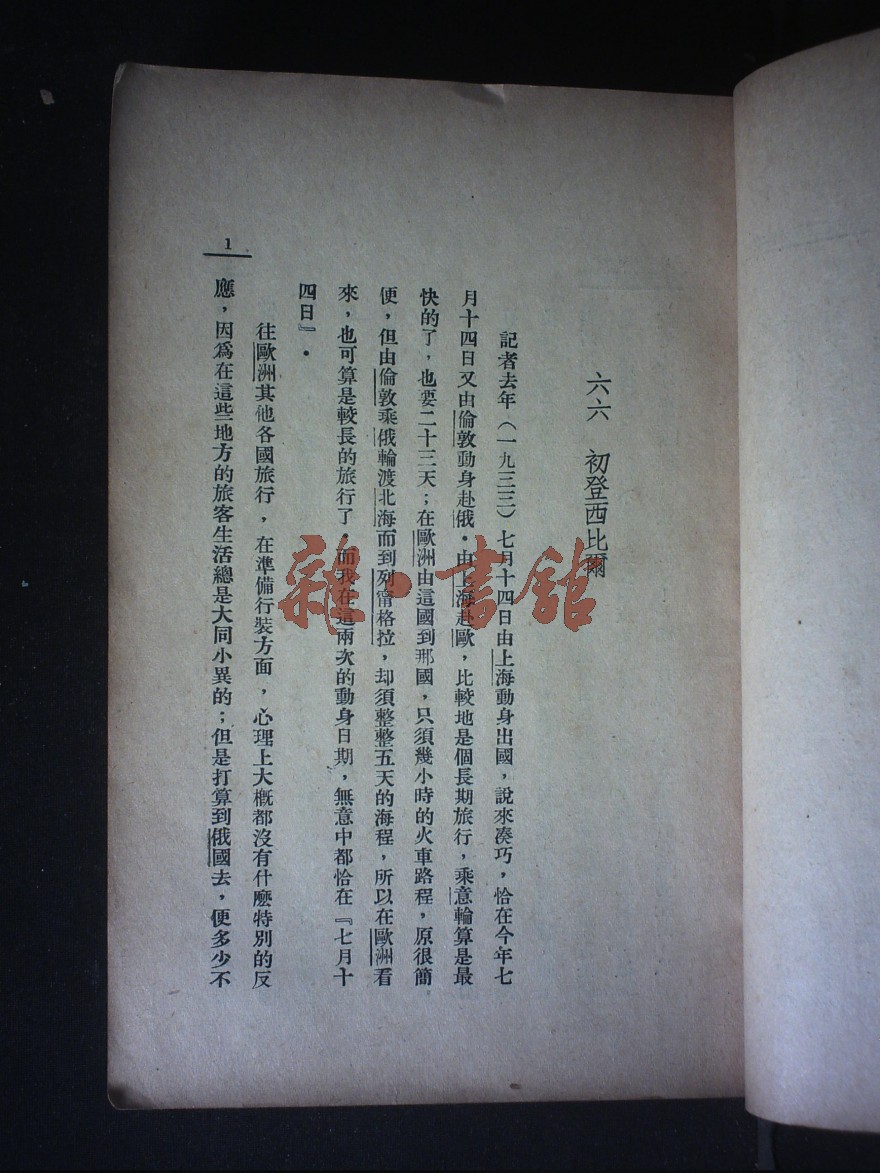 六六　初登西比爾
記者去年（一九三三）七月十四日由上海動身出國，說來湊巧，恰在今年七
月十四日又由倫敦動身赴俄．由上海赴歐，比較地是個長期旅行，乘意輪算是最
快的了，也要二十三天；在歐洲由這國到那國，只須幾小時的火車路程，原很簡
便，但由倫敦乘俄輪渡北海而到列甯格拉，却須整整五天的海程，所以在歐洲看
來，也可算是較長的旅行了．而我在這兩次的動身日期，無意中都恰在『七月十
四日』．
往歐洲其他各國旅行，在準備行裝方面，心理上大概都沒有什麽特別的反
應，因爲在這些地方的旅客生活總是大同小異的；但是打算到俄國去，便多少不
1
雜·書館